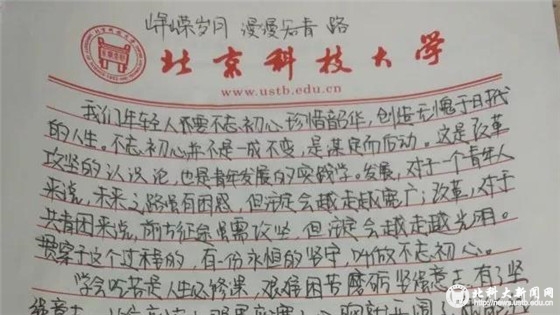 峥嵘岁月 漫漫知青路
北京科技大学
www.ustb.edu.cn
我们年轻人都要不忘初心珍惜韶华,创造无愧于时代
的人生。不忘初心并不是一成不变,是谋定而后动。这是改革
攻坚的认识论,也是青年发展的实践学。发展,对于一个青年人
来说,未来之路虽有困惑,但注定会越走越宽广;改革,对于
共青团来说,前方征途虽需攻坚,但注定会越走越光明。
贯穿于这个过程的,有一份永恒的坚守,叫做不忘初心。
学会吃苦是人生必修课,艰难困苦磨砺坚强意志,有了坚
强意志
北科大新闻网
http://news.ustb.edu.cn